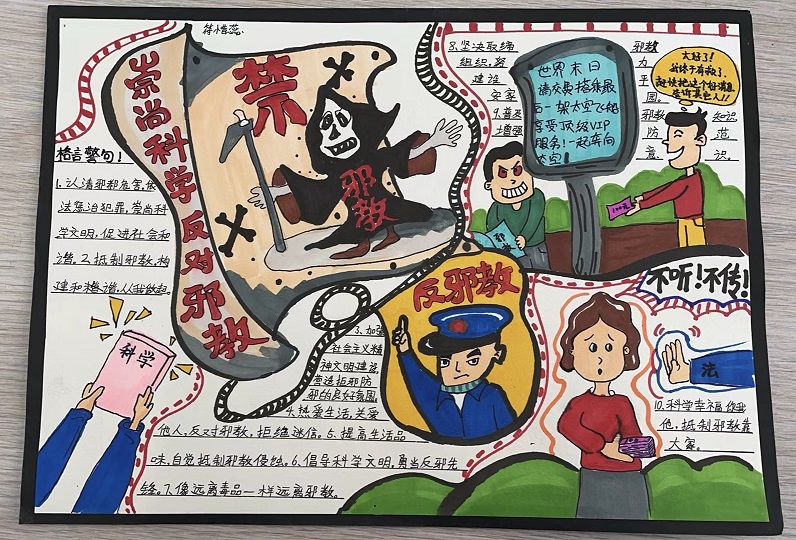 崇尚科学 反对邪教
禁
邪教
格言警句!
1.认清邪教危害,依
法惩治犯罪,崇尚科
学文明,促进社会和
谐。2.抵制邪教,构
建和谐,从我做起。
科学
3.加强
社会主义精
神文明建设
营造拒邪防
邪的良好氛围
4.热爱生活,关爱
他人,反对邪教,拒绝迷信。5.提高生活品
味,自觉抵制邪教侵蚀。6.倡导科学文明,勇当反邪先
锋。7.像远离毒品一样远离邪教。
反邪教
8.坚决取缔 邪教
组织,努 力
建设 平
安家 园。
9.普及 邪教 知识
增强 防 范
意 识。
世界末日
请交费搭乘最
后一架太空飞船
享受顶级VIP
服务!一起奔向
太空!
太好了!
我终于有救了,
赶快把这个好消息
告诉其他人!!
邪教
100元
不听!不传!
法
10.科学幸福你我
他,抵制邪教靠
大家。